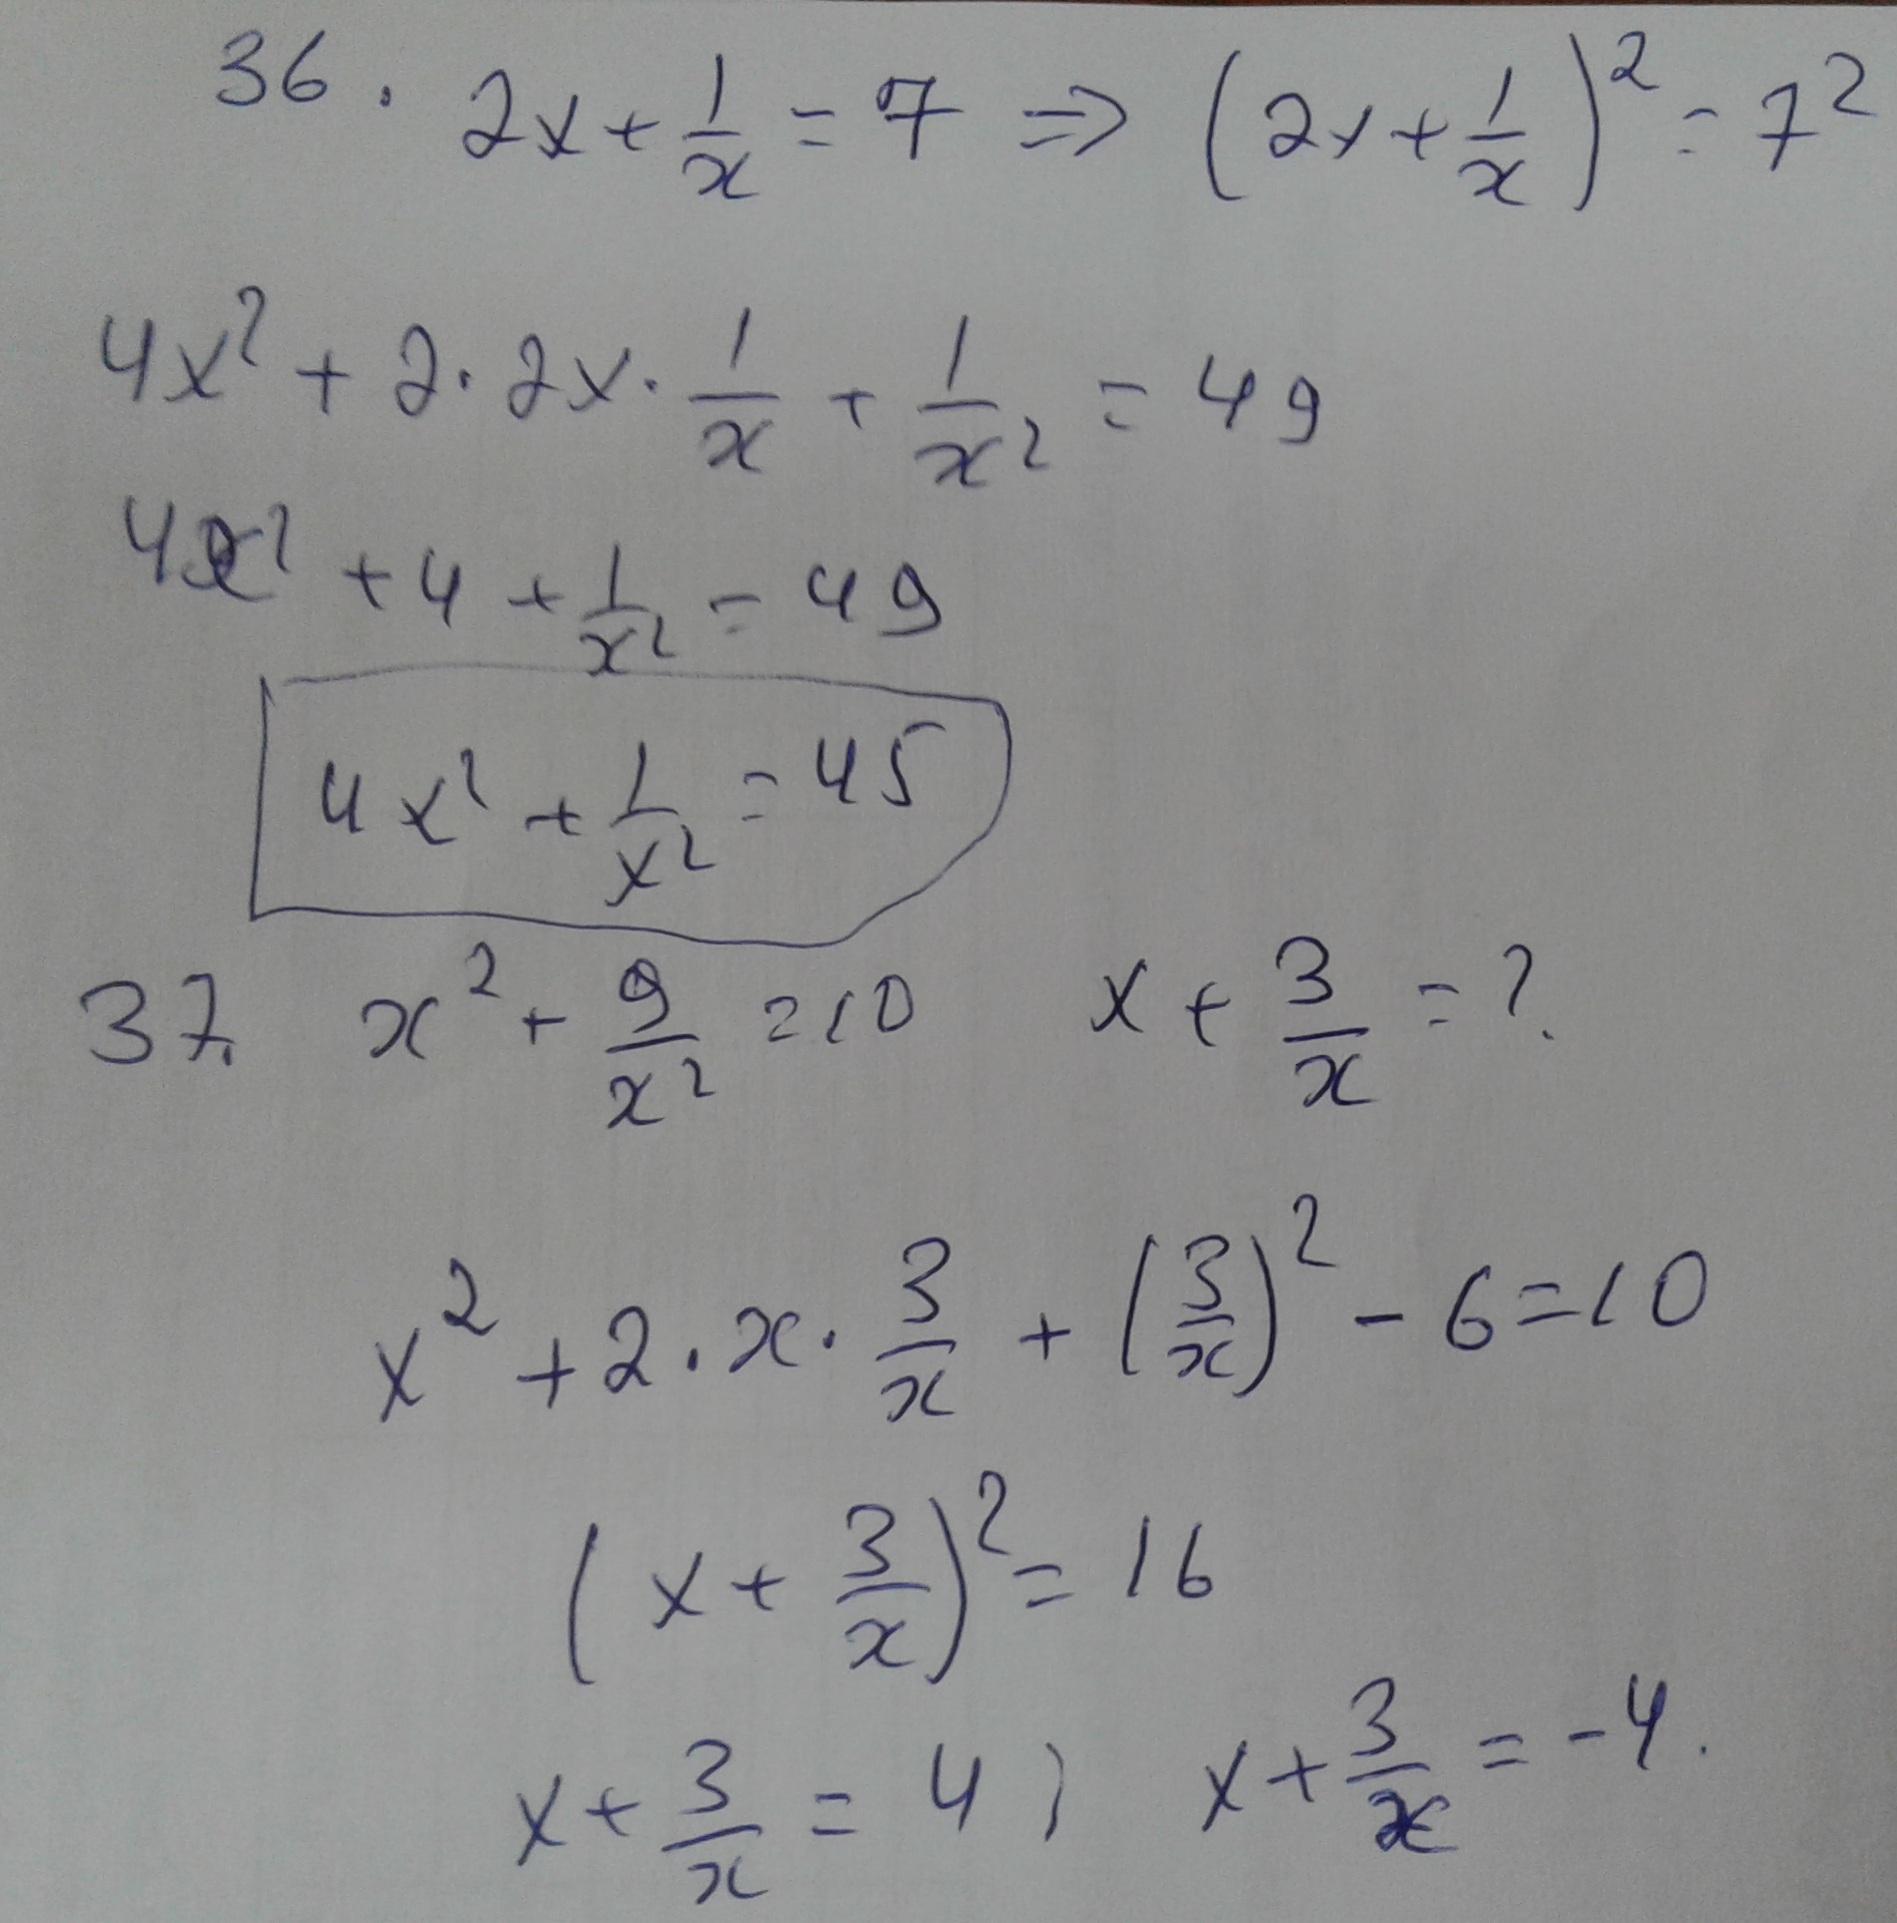 36. 2x + 1/x = 7 ⇒ (2x + 1/x)² = 7²
4x² + 2·2x·1/x + 1/x² = 49
4x² + 4 + 1/x² = 49
4x² + 1/x² = 45
37. x² + 9/x² = 10 x + 3/x = ?
x² + 2·x·3/x + (3/x)² - 6 = 10
(x + 3/x)² = 16
x + 3/x = 4; x + 3/x = -4.